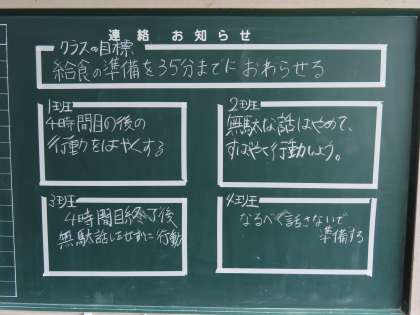 連絡 お知らせ
クラスの目標
給食の準備を35分までにおわらせる
1班
4時間目の後の
行動をはやくする
2班
無駄な話はやめて、
すばやく行動しよう。
3班
4時間目終了後
無駄話しをせずに行動
4班
なるべく話さないで
準備する